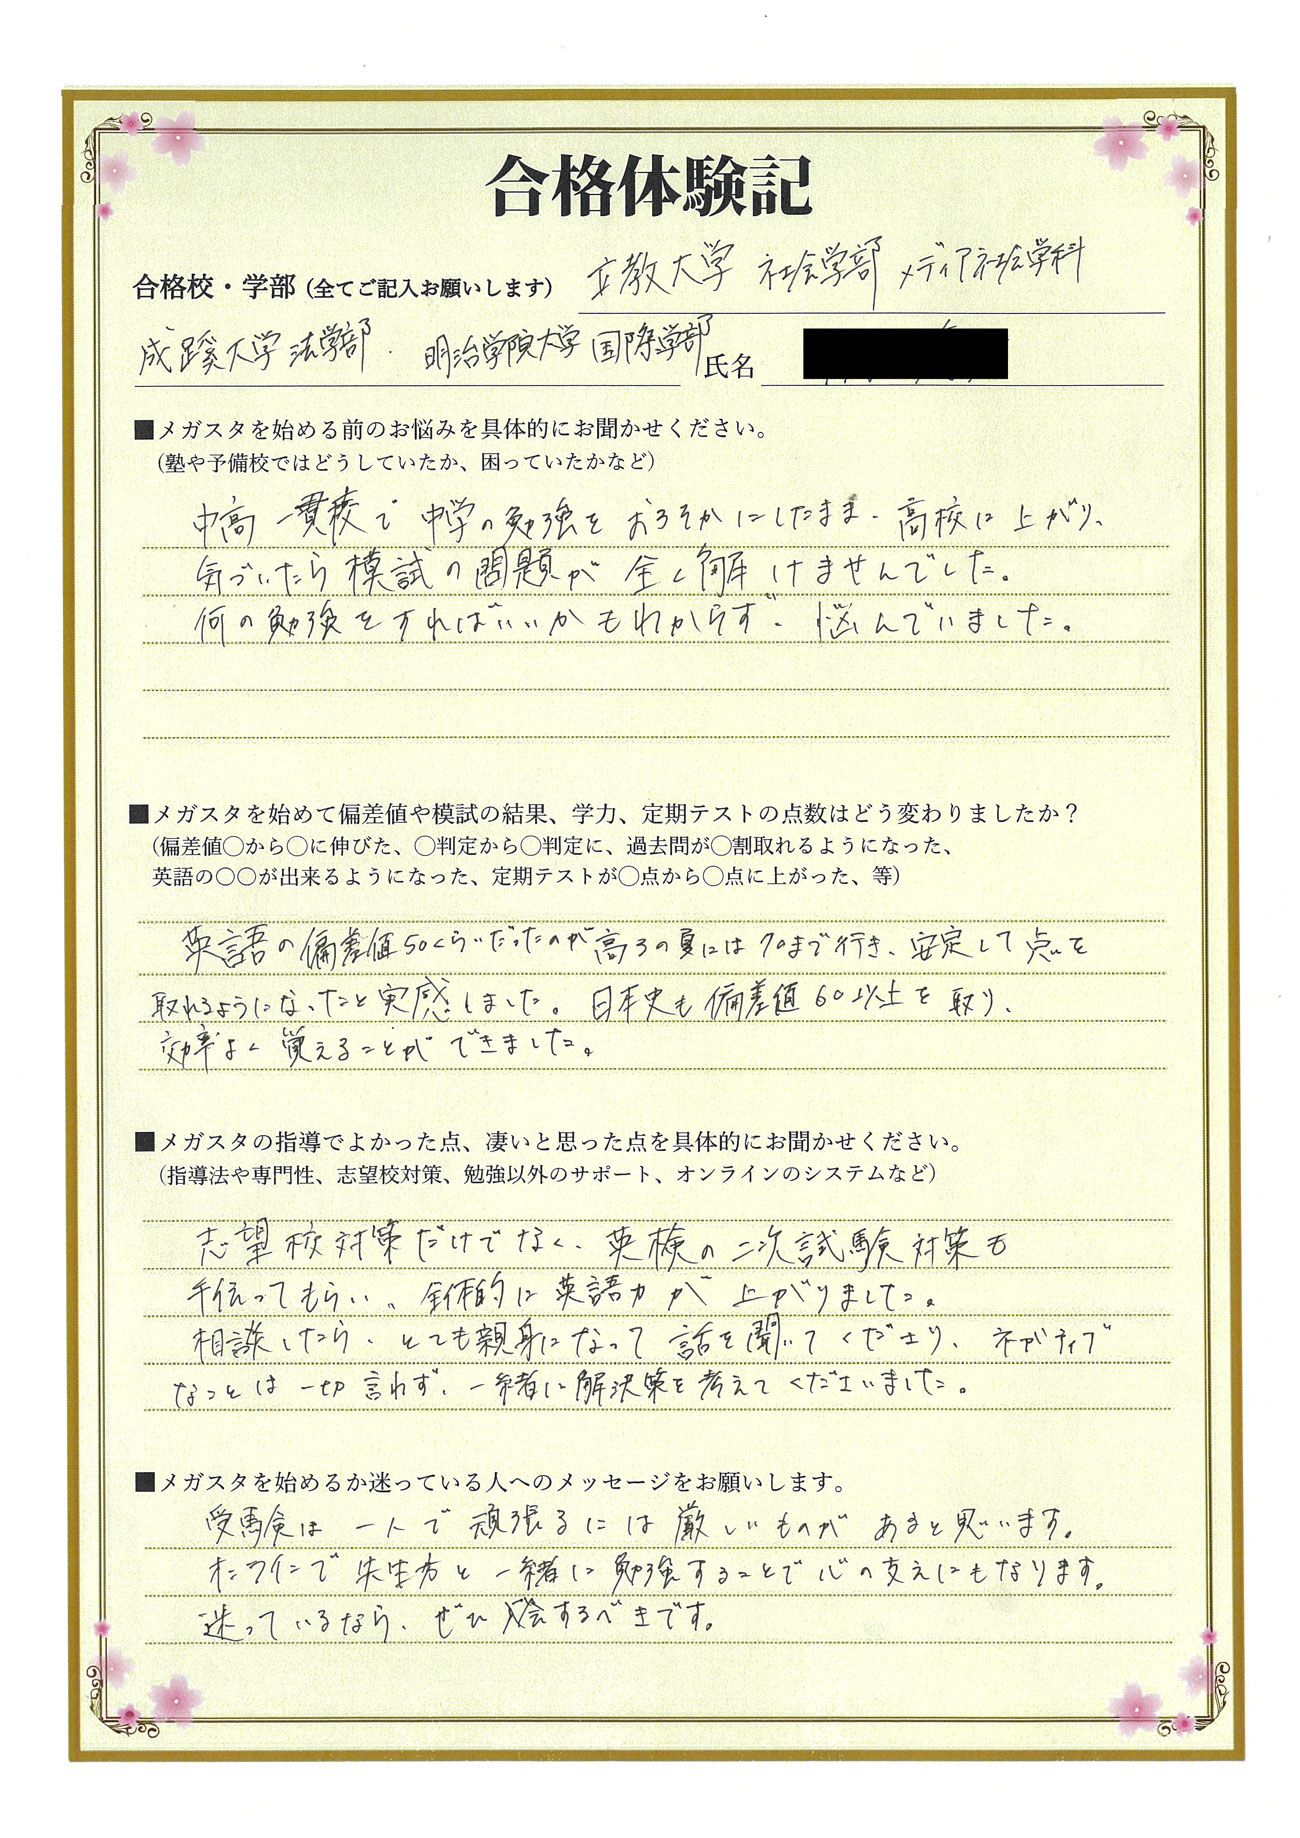 合格体験記
合格校・学部(全てご記入お願いします) 立教大学 社会学部 メディア社会学科
成蹊大学法学部. 明治学院大学国際学部 氏名
■メガスタを始める前のお悩みを具体的にお聞かせください。
(塾や予備校ではどうしていたか、困っていたかなど)
中高一貫校で中学の勉強をおろそかにしたまま、高校に上がり、
気づいたら模試の問題が全く解けませんでした。
何の勉強をすればいいかもわからず、悩んでいました。
■メガスタを始めて偏差値や模試の結果、学力、定期テストの点数はどう変わりましたか？
(偏差値〇から〇に伸びた、〇判定から〇判定に、過去問が〇割取れるようになった、
英語の〇〇が出来るようになった、定期テストが〇点から〇点に上がった、等)
英語の偏差値50くらいだったのが高3の夏には70まで行き、安定して点を
取れるようになったと実感しました。日本史も偏差値60以上を取り、
効率よく覚えることができました。
■メガスタの指導でよかった点、凄いと思った点を具体的にお聞かせください。
(指導法や専門性、志望校対策、勉強以外のサポート、オンラインのシステムなど)
志望校対策だけでなく、英検の二次試験対策も
手伝ってもらい、全体的に英語力が上がりました。
相談したら、とても親身になって話を聞いてくださり、ネガティブ
なことは一切言わず、一緒に解決策を考えてくださいました。
■メガスタを始めるか迷っている人へのメッセージをお願いします。
受験は一人で頑張るには厳しいものがあると思います。
オンラインで先生方と一緒に勉強することで心の支えにもなります。
迷っているなら、ぜひ入会するべきです。